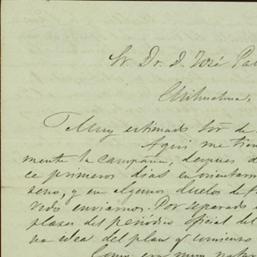 Sr. Dr. D. José Pa
Chihuahua,
Muy estimado Sor de
Aqui me tien
mente la campaña, despues d
ce primeros dias en orientarm
seno, y en algunos duelos de f
enviarnos. Por separado
plares del periódico oficial del
va idea del plan y comiens
Como en muy notar